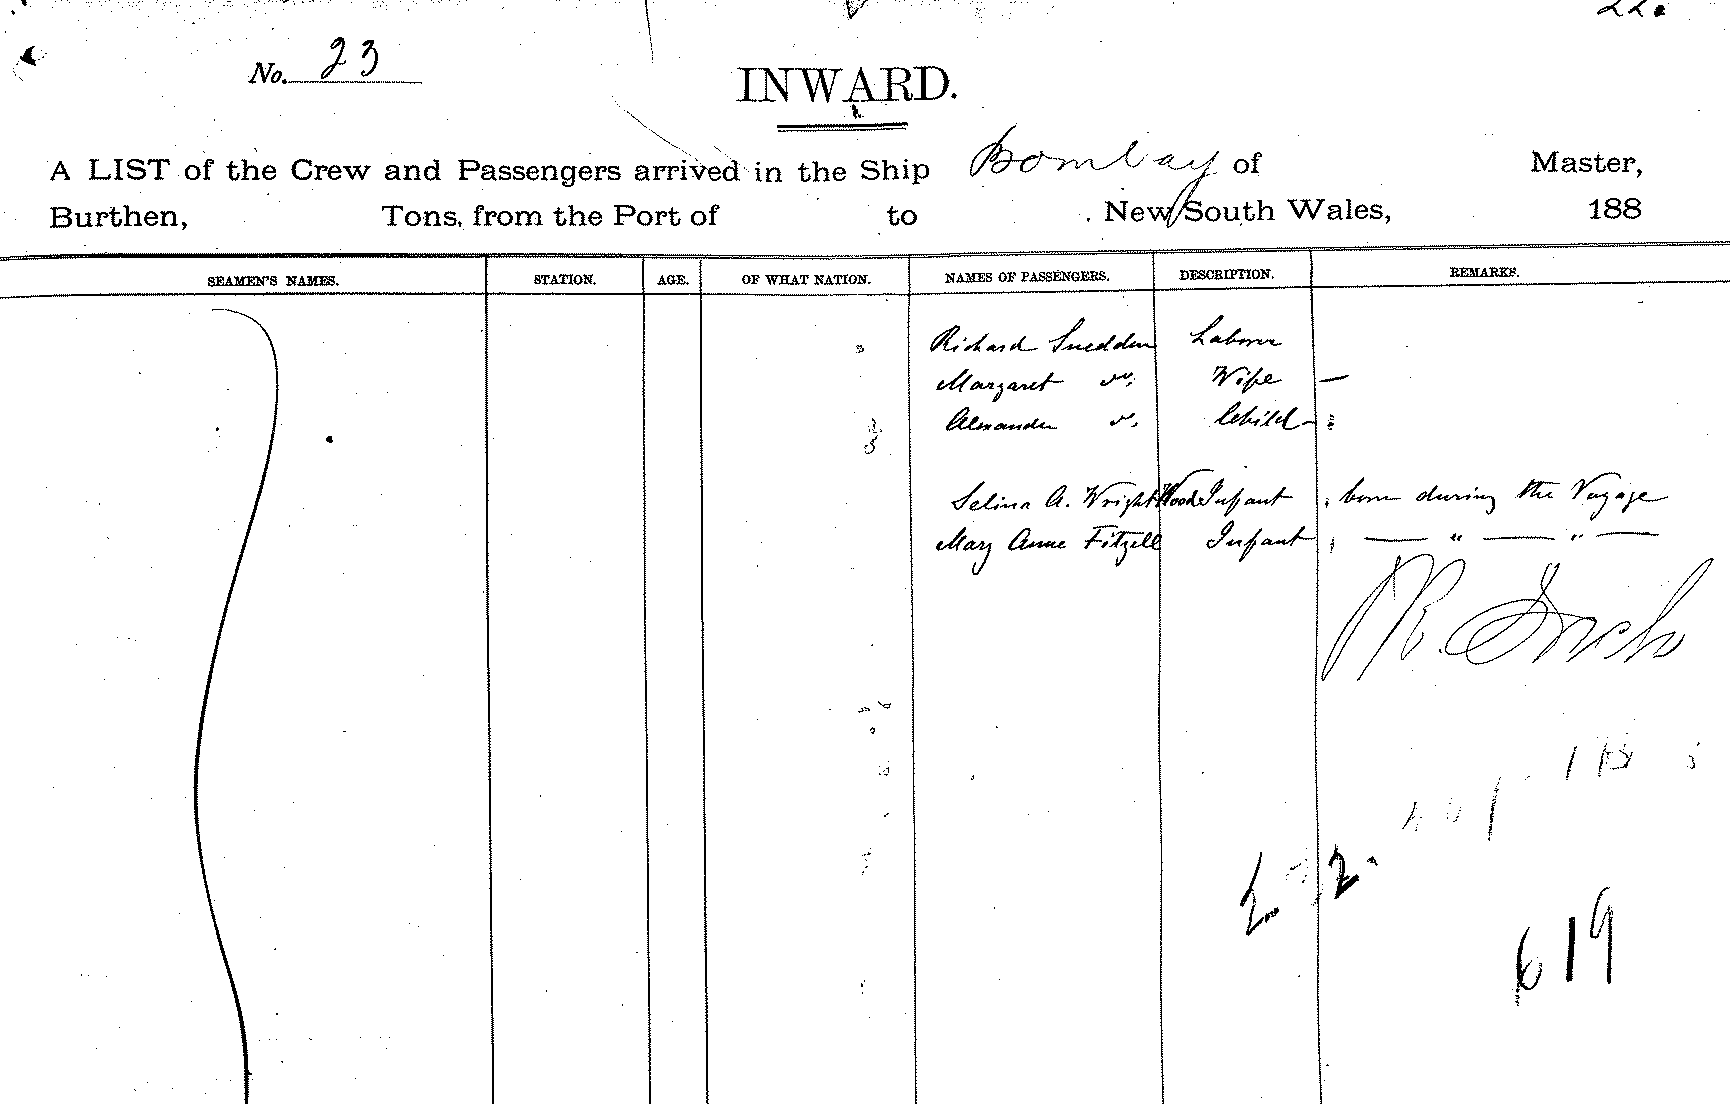 22.
No. 23
INWARD.
A LIST of the Crew and Passengers arrived in the Ship Bombay of Master,
Burthen, Tons, from the Port of to New South Wales, 188
SEAMEN'S NAMES. STATION. AGE. OF WHAT NATION. NAMES OF PASSENGERS. DESCRIPTION. REMARKS.
Richard Snedden Laborer
Margaret do. Wife —
Alexander do. Child
Selina A. Wright Wood Infant born during the Voyage
Mary Anne Fitzell Infant — " — " —
R.
2.
619